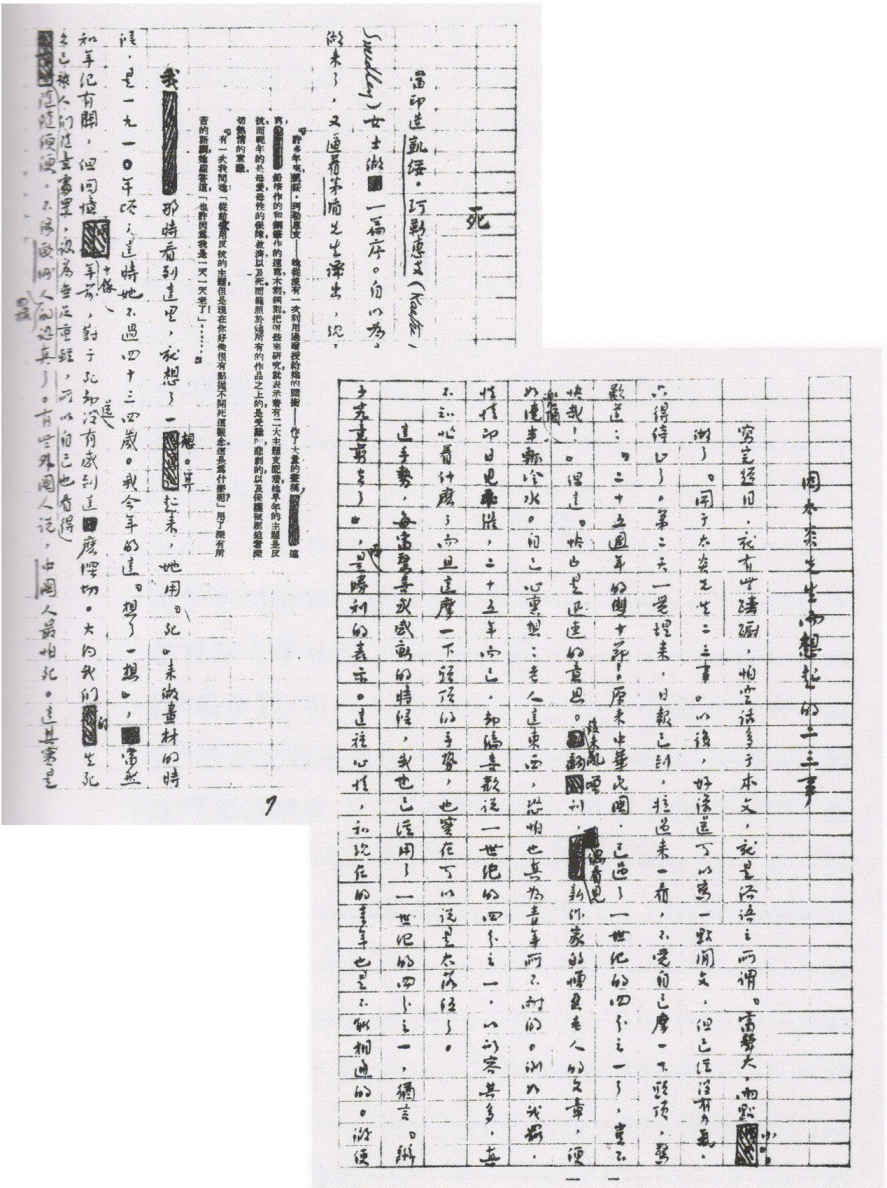 死
當印造凱綏·珂勒惠支(Kaethe
Smedley)女士做一篇序。自以为
做来了,又逼着茅盾先生譯出,現
「許多年來,凱綏·珂勒惠支——她從沒有一次利用過贈授給她的頭銜——作了大量的畫稿,這
抗,而晚年的是母愛,母性的保障,救濟,以及死。而籠照於她所有的作品之上的,是受難的,悲劇的,以及保護被壓迫者深
切熱情的意識。
「有一次我問她:「從前你用反抗的主題,但是現在你好像很有點拋不開死這觀念。這是爲什麼呢?」用了深有所
苦的語調,她回答道,「也許因爲我是一天一天老了!」……」
我那時看到這里,就想了一想。算起来,她用“死”来做畫材的時
候,是一九一〇年頃;這時她不過四十三四歲。我今年的這“想了一想”,當然
和年紀有關,但回憶十餘年前,對于死却沒有感到這麼深切。大約我們的生死
久已被人們隨意處置,認為無足重輕,所以自己也看得
隨隨便便,不像歐洲人那樣的認真了。有些外國人說,中國人最怕死。這其實是
7
因太炎先生而想起的二三事
寫完題目,就有些躊躕,怕空話多于本文,就是俗語之所謂“雷聲大,雨點小”。
做了“関于太炎先生二三事”以後,好像還可以寫一點閒文,但已經沒有力氣,
只得停止了。第二天一覺醒来,日報已到,拉過来一看,不覺自己摩一下頭頂,驚
歎道:“二十五週年的雙十節!原来中華民國,已過了一世紀的四分之一了,豈不
快哉!”但這“快”是迅速的意思。後来亂翻增刊,偶看見新作家的憎惡老人的文章,便
如兜頂澆半瓢冷水。自己心裏想:老人這東西,恐怕也真為青年所不耐的。例如我罷,
性情即日見乖張,二十五年而已,却偏喜歡說一世紀的四分之一,以形容其多,真
不知忙着什麼;而且這摩一下頭頂的手勢,也實在可以說是太落伍了。
這手勢,每當驚喜或感動的時候,我也已經用了一世紀的四分之一,猶言“辮
子究竟剪去了”,原是勝利的表示。這種心情,和現在的青年也是不能相通的。假使
一一